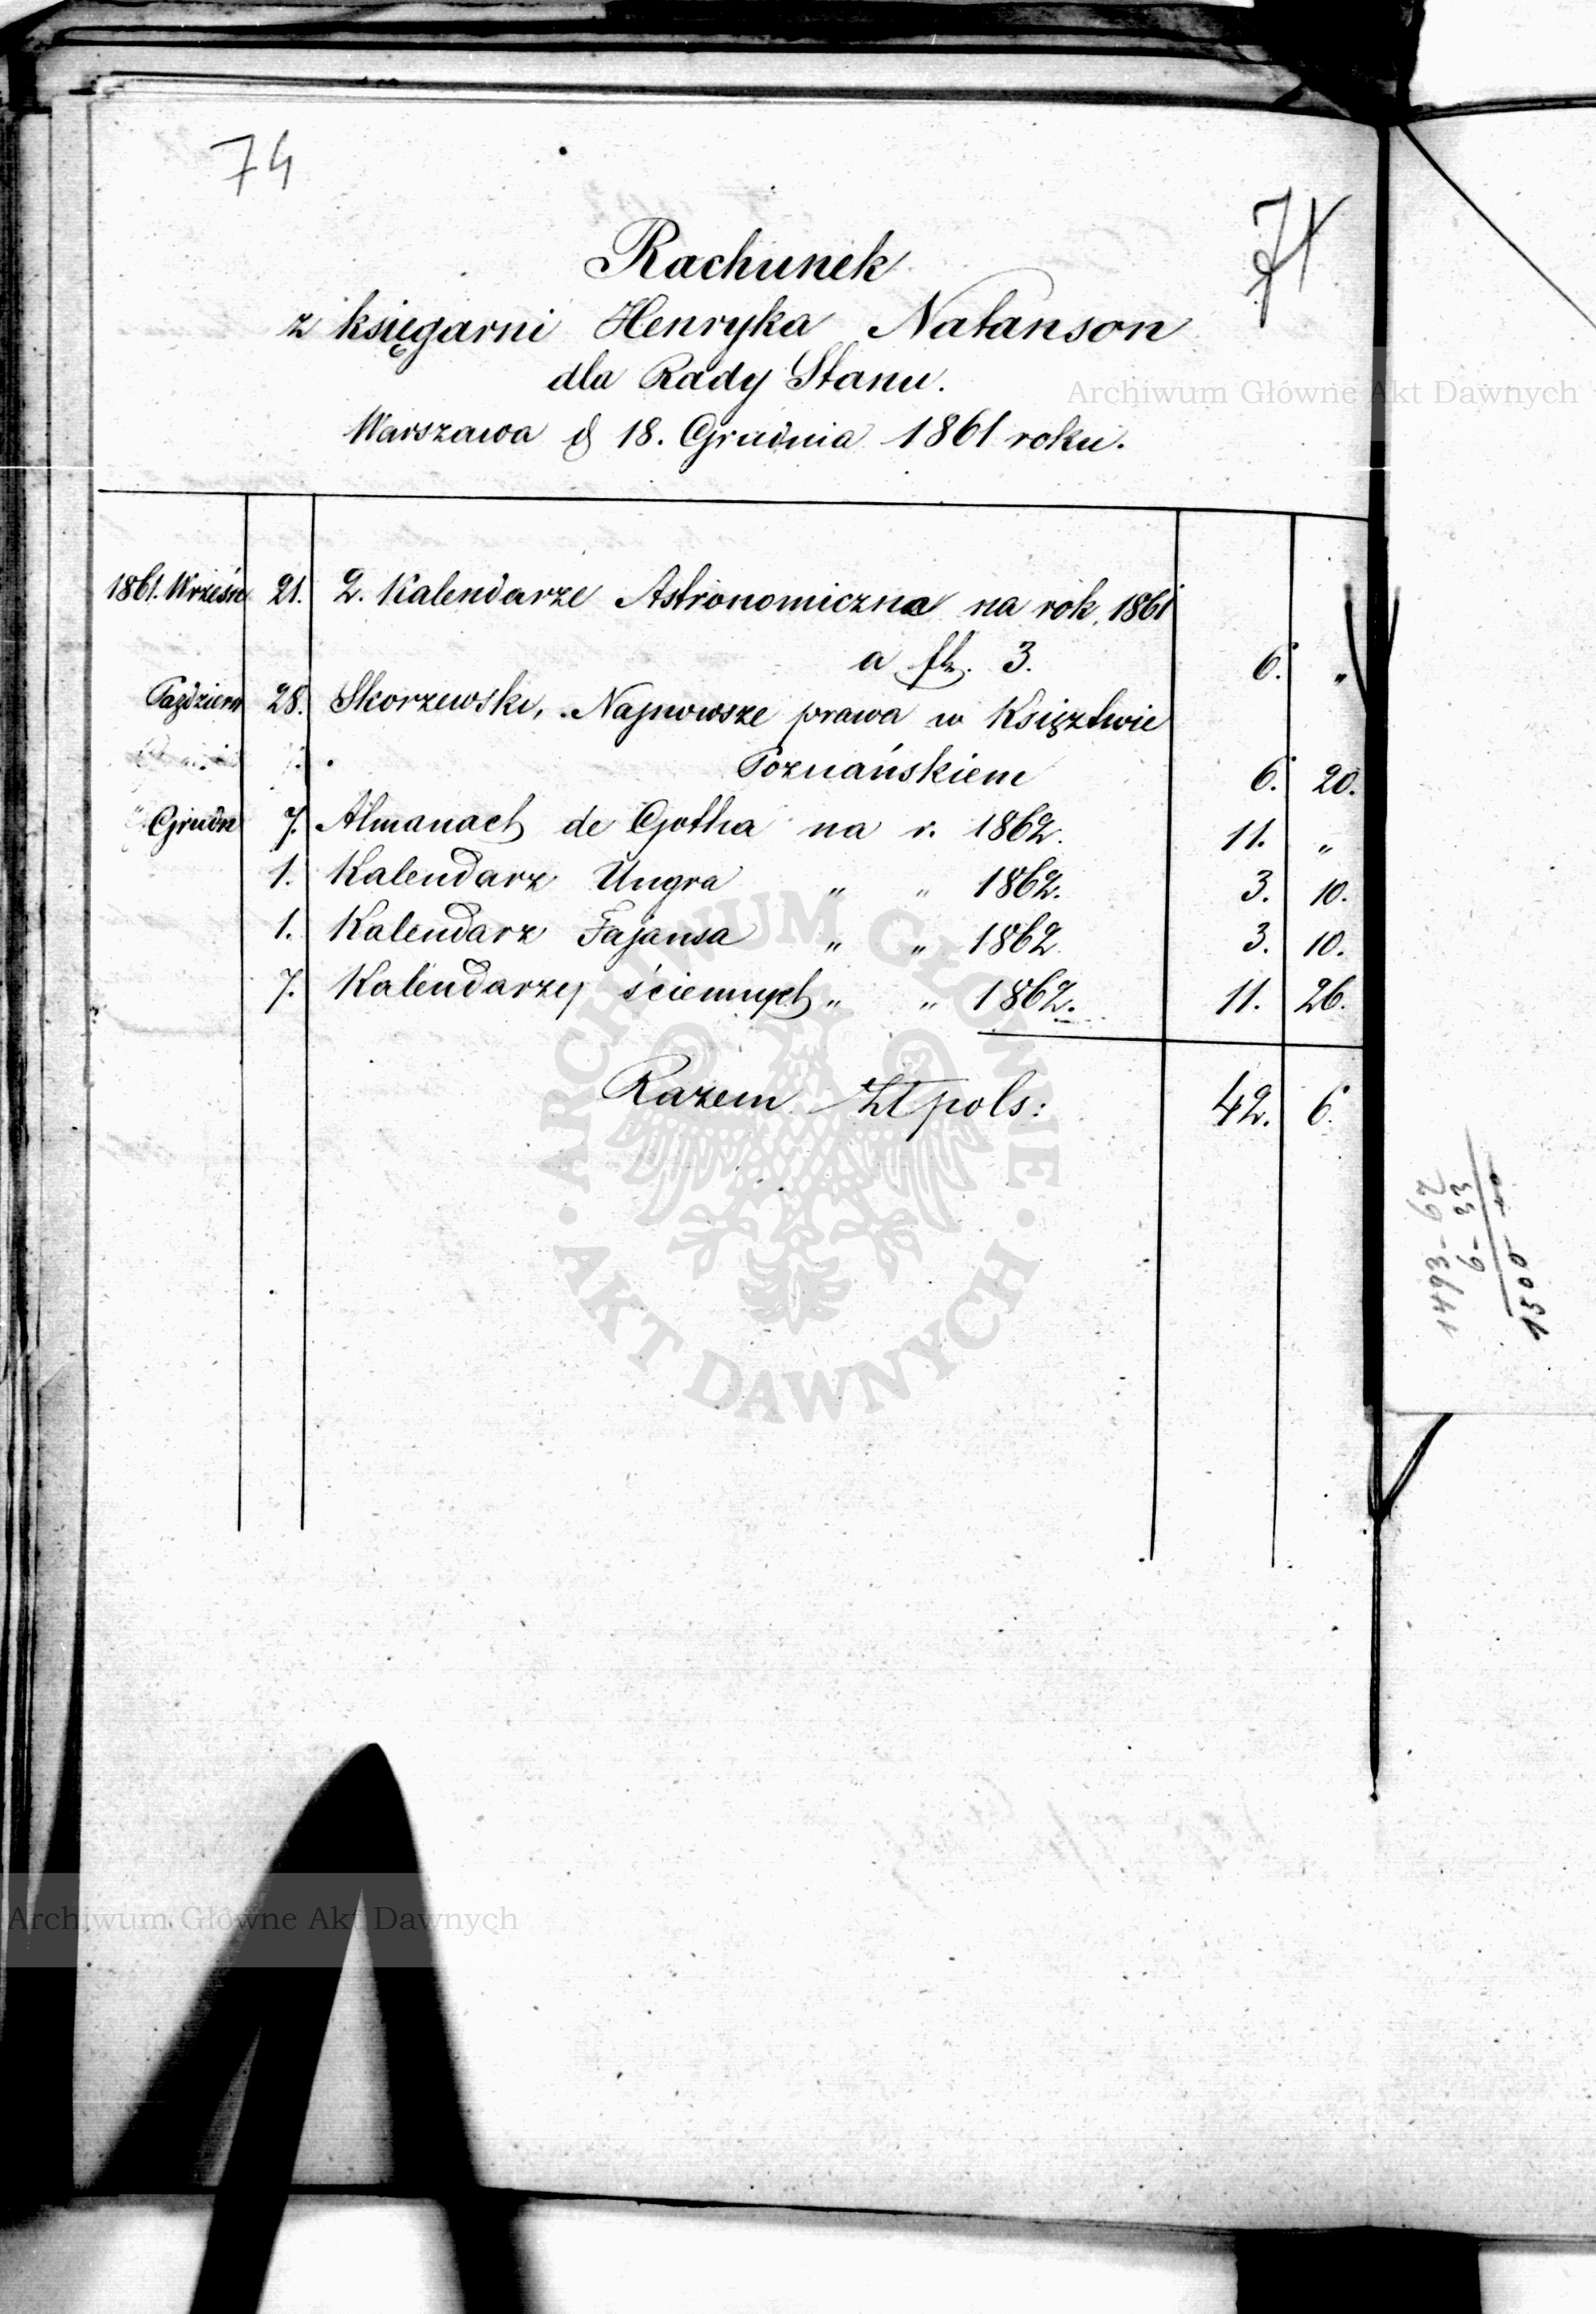 74
74
Rachunek
z księgarni Henryka Natanson
dla Rady Stanu.
Warszawa d 18. Grudnia 1861 roku.
1861. Wrześn 21. 2. Kalendarze Astronomiczna na rok 1861
a fl. 3. 6. "
Paździem 28. Skorzewski, Najnowsze prawa w Księztwie
Poznańskiem 6. 20.
Grudn 7. Almanach de Gotha na r. 1862. 11. "
1. Kalendarz Ungra " " 1862. 3. 10.
1. Kalendarz Fajansa " " 1862 3. 10.
7. Kalendarzy ściennych " " 1862. 11. 26.
Razem Złpols: 42. 6.
1493-67
6-33
1500
Archiwum Główne Akt Dawnych
ARCHIWUM GŁÓWNE AKT DAWNYCH
Archiwum Główne Akt Dawnych